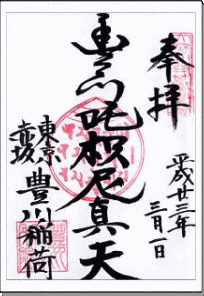 奉拝
平成廿三年
三月一日
豊川吒枳尼真天
東京
赤坂
豊川稲荷